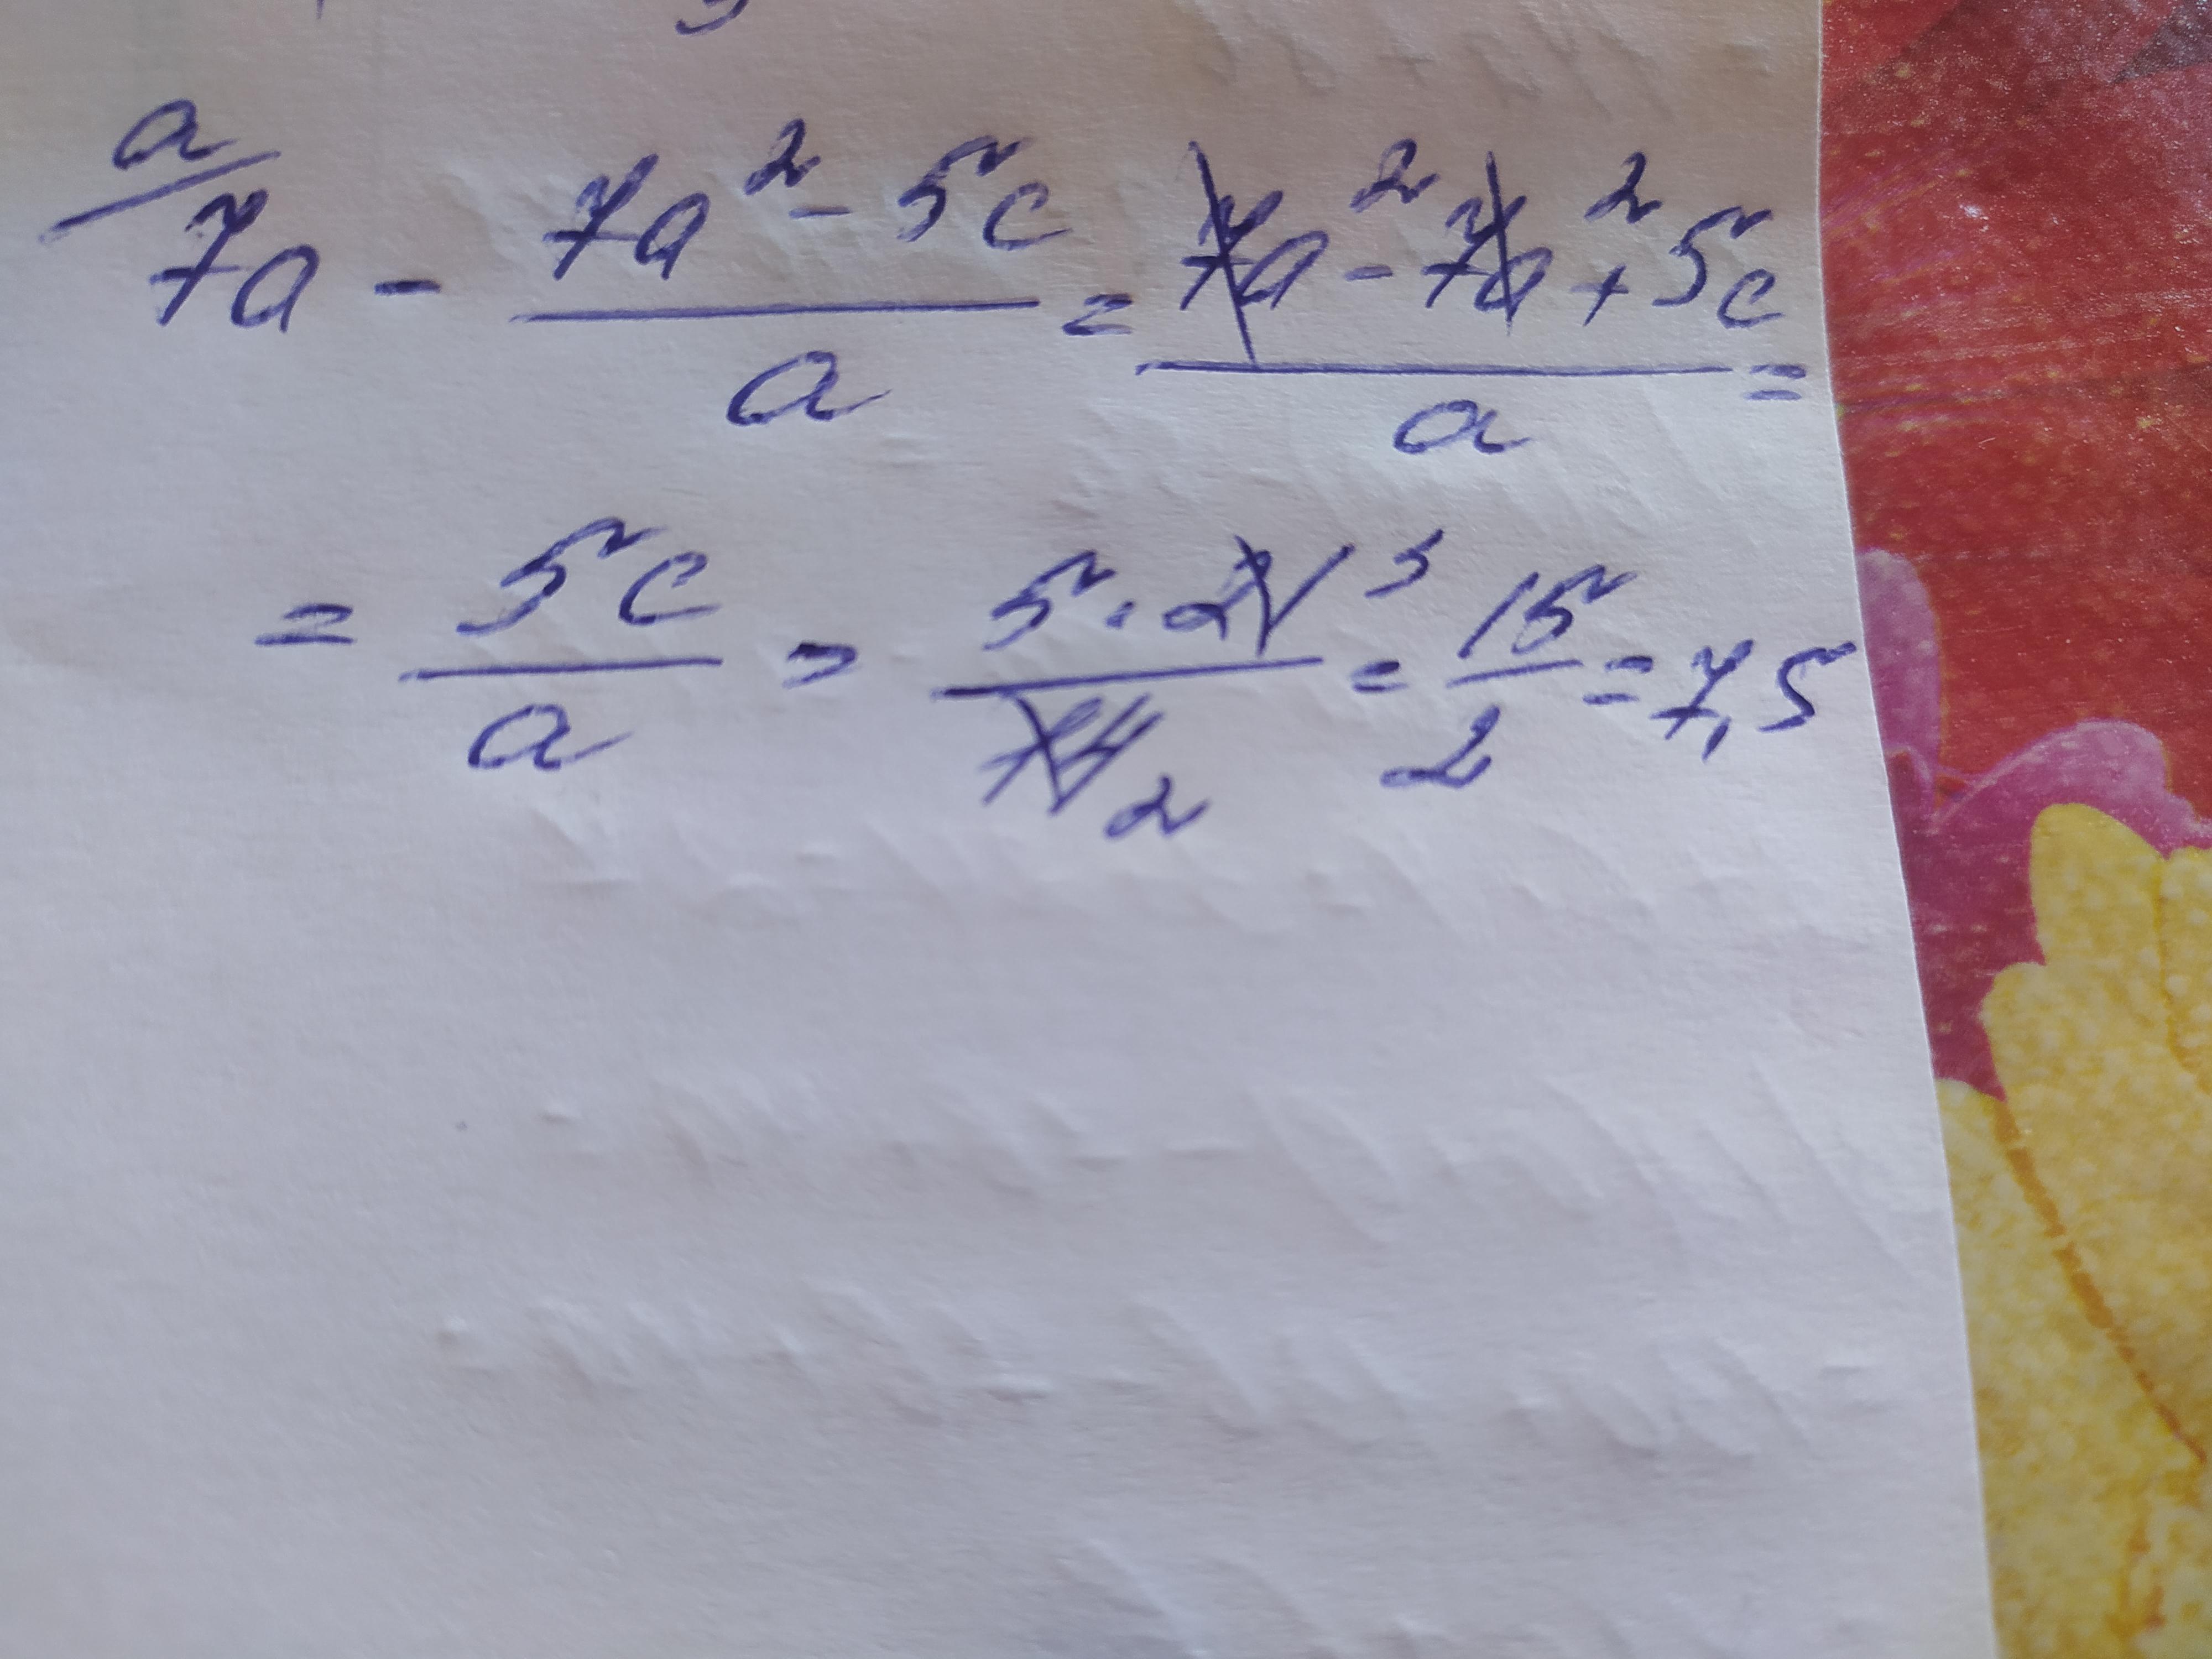 a/ 7a - (7a² - 5c)/a = (7a² - 7a² + 5c)/a =
= 5c/a = (5 · 21 3)/(14 2) = 15/2 = 7,5